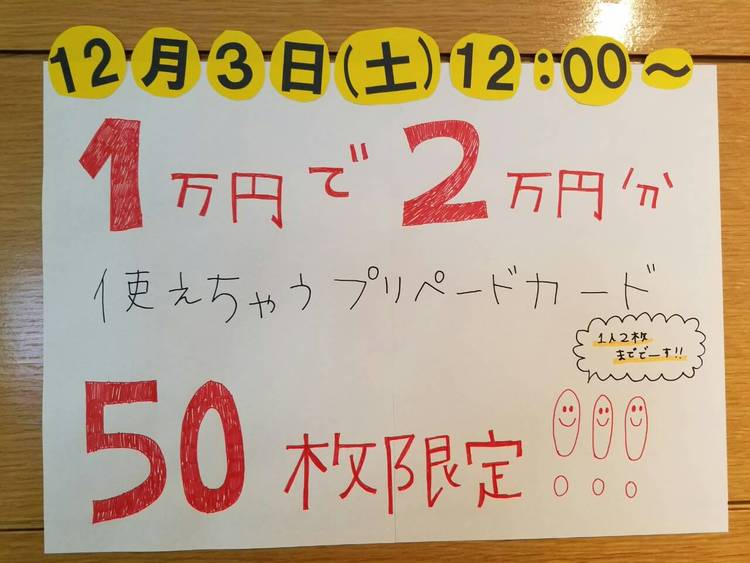 12月3日(土)12:00~
1万円で2万円分
使えちゃうプリペードカード
1人2枚
まででーす!!
50枚限定!!!